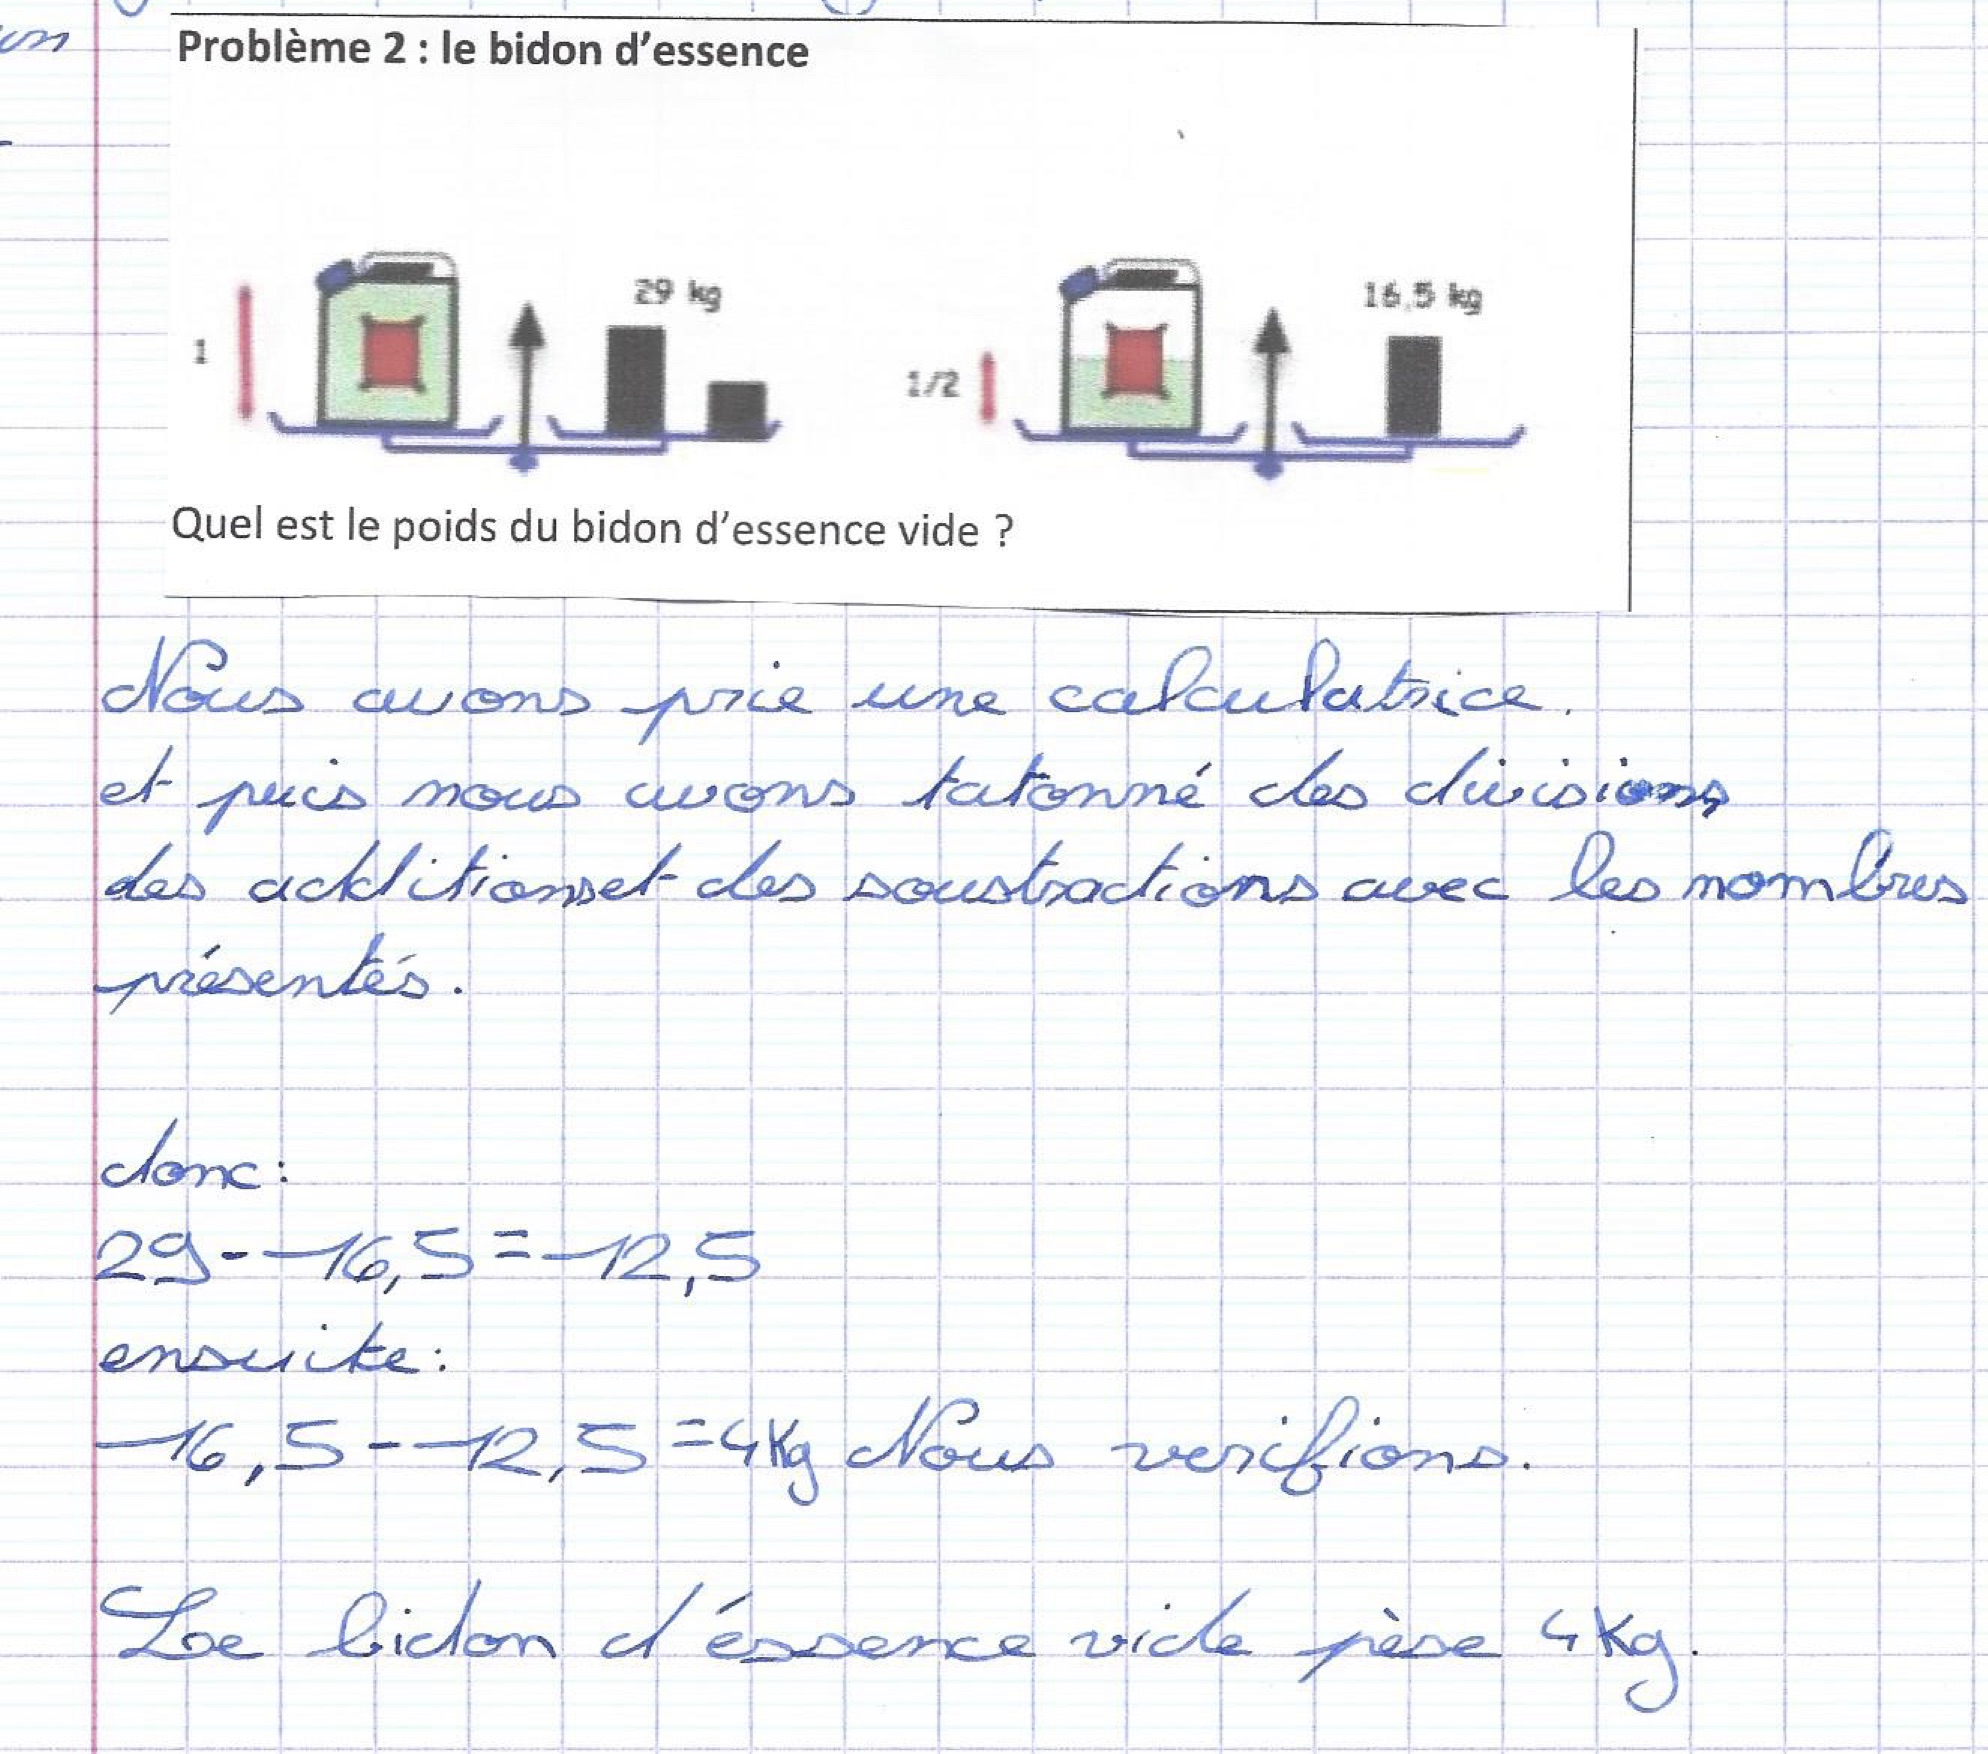 Problème 2 : le bidon d'essence
1
29 kg
1/2
16,5 kg
Quel est le poids du bidon d'essence vide ?
Nous avons prie une calculatrice.
et puis nous avons tatonné des divisions,
des additions et des soustractions avec les nombres
présentés.
donc:
29-16,5=12,5
ensuite:
16,5-12,5=4Kg Nous verifions.
Le bidon d'éssence vide pèse 4Kg.